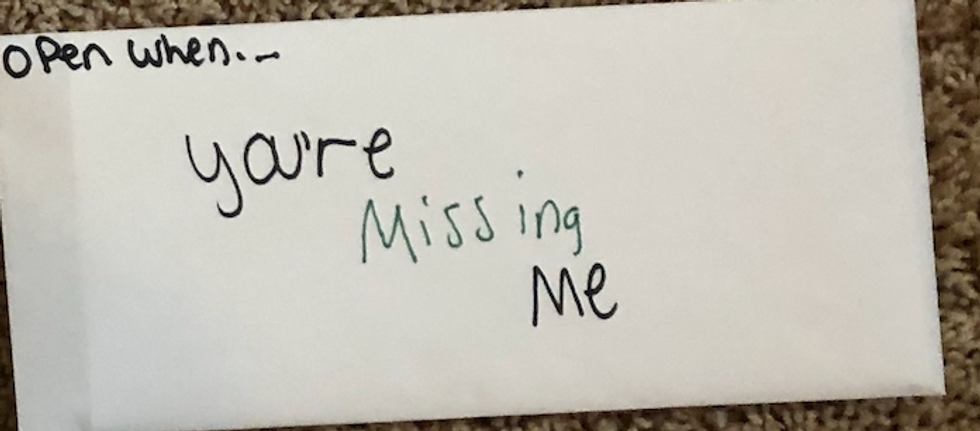 open when...
you're
Missing
Me